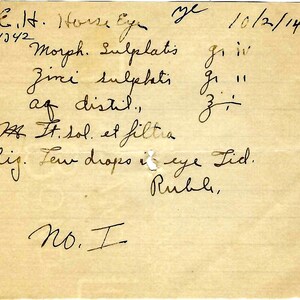 C. H. Horse Eye ye 10/2/14
1342
Morph. Sulphats gr iv
Zinci sulphts gr ii
aq distil., ℥i
M Ft. sol. et filtra
Sig. Few drops in eye Tid.
Rubl.
No. I